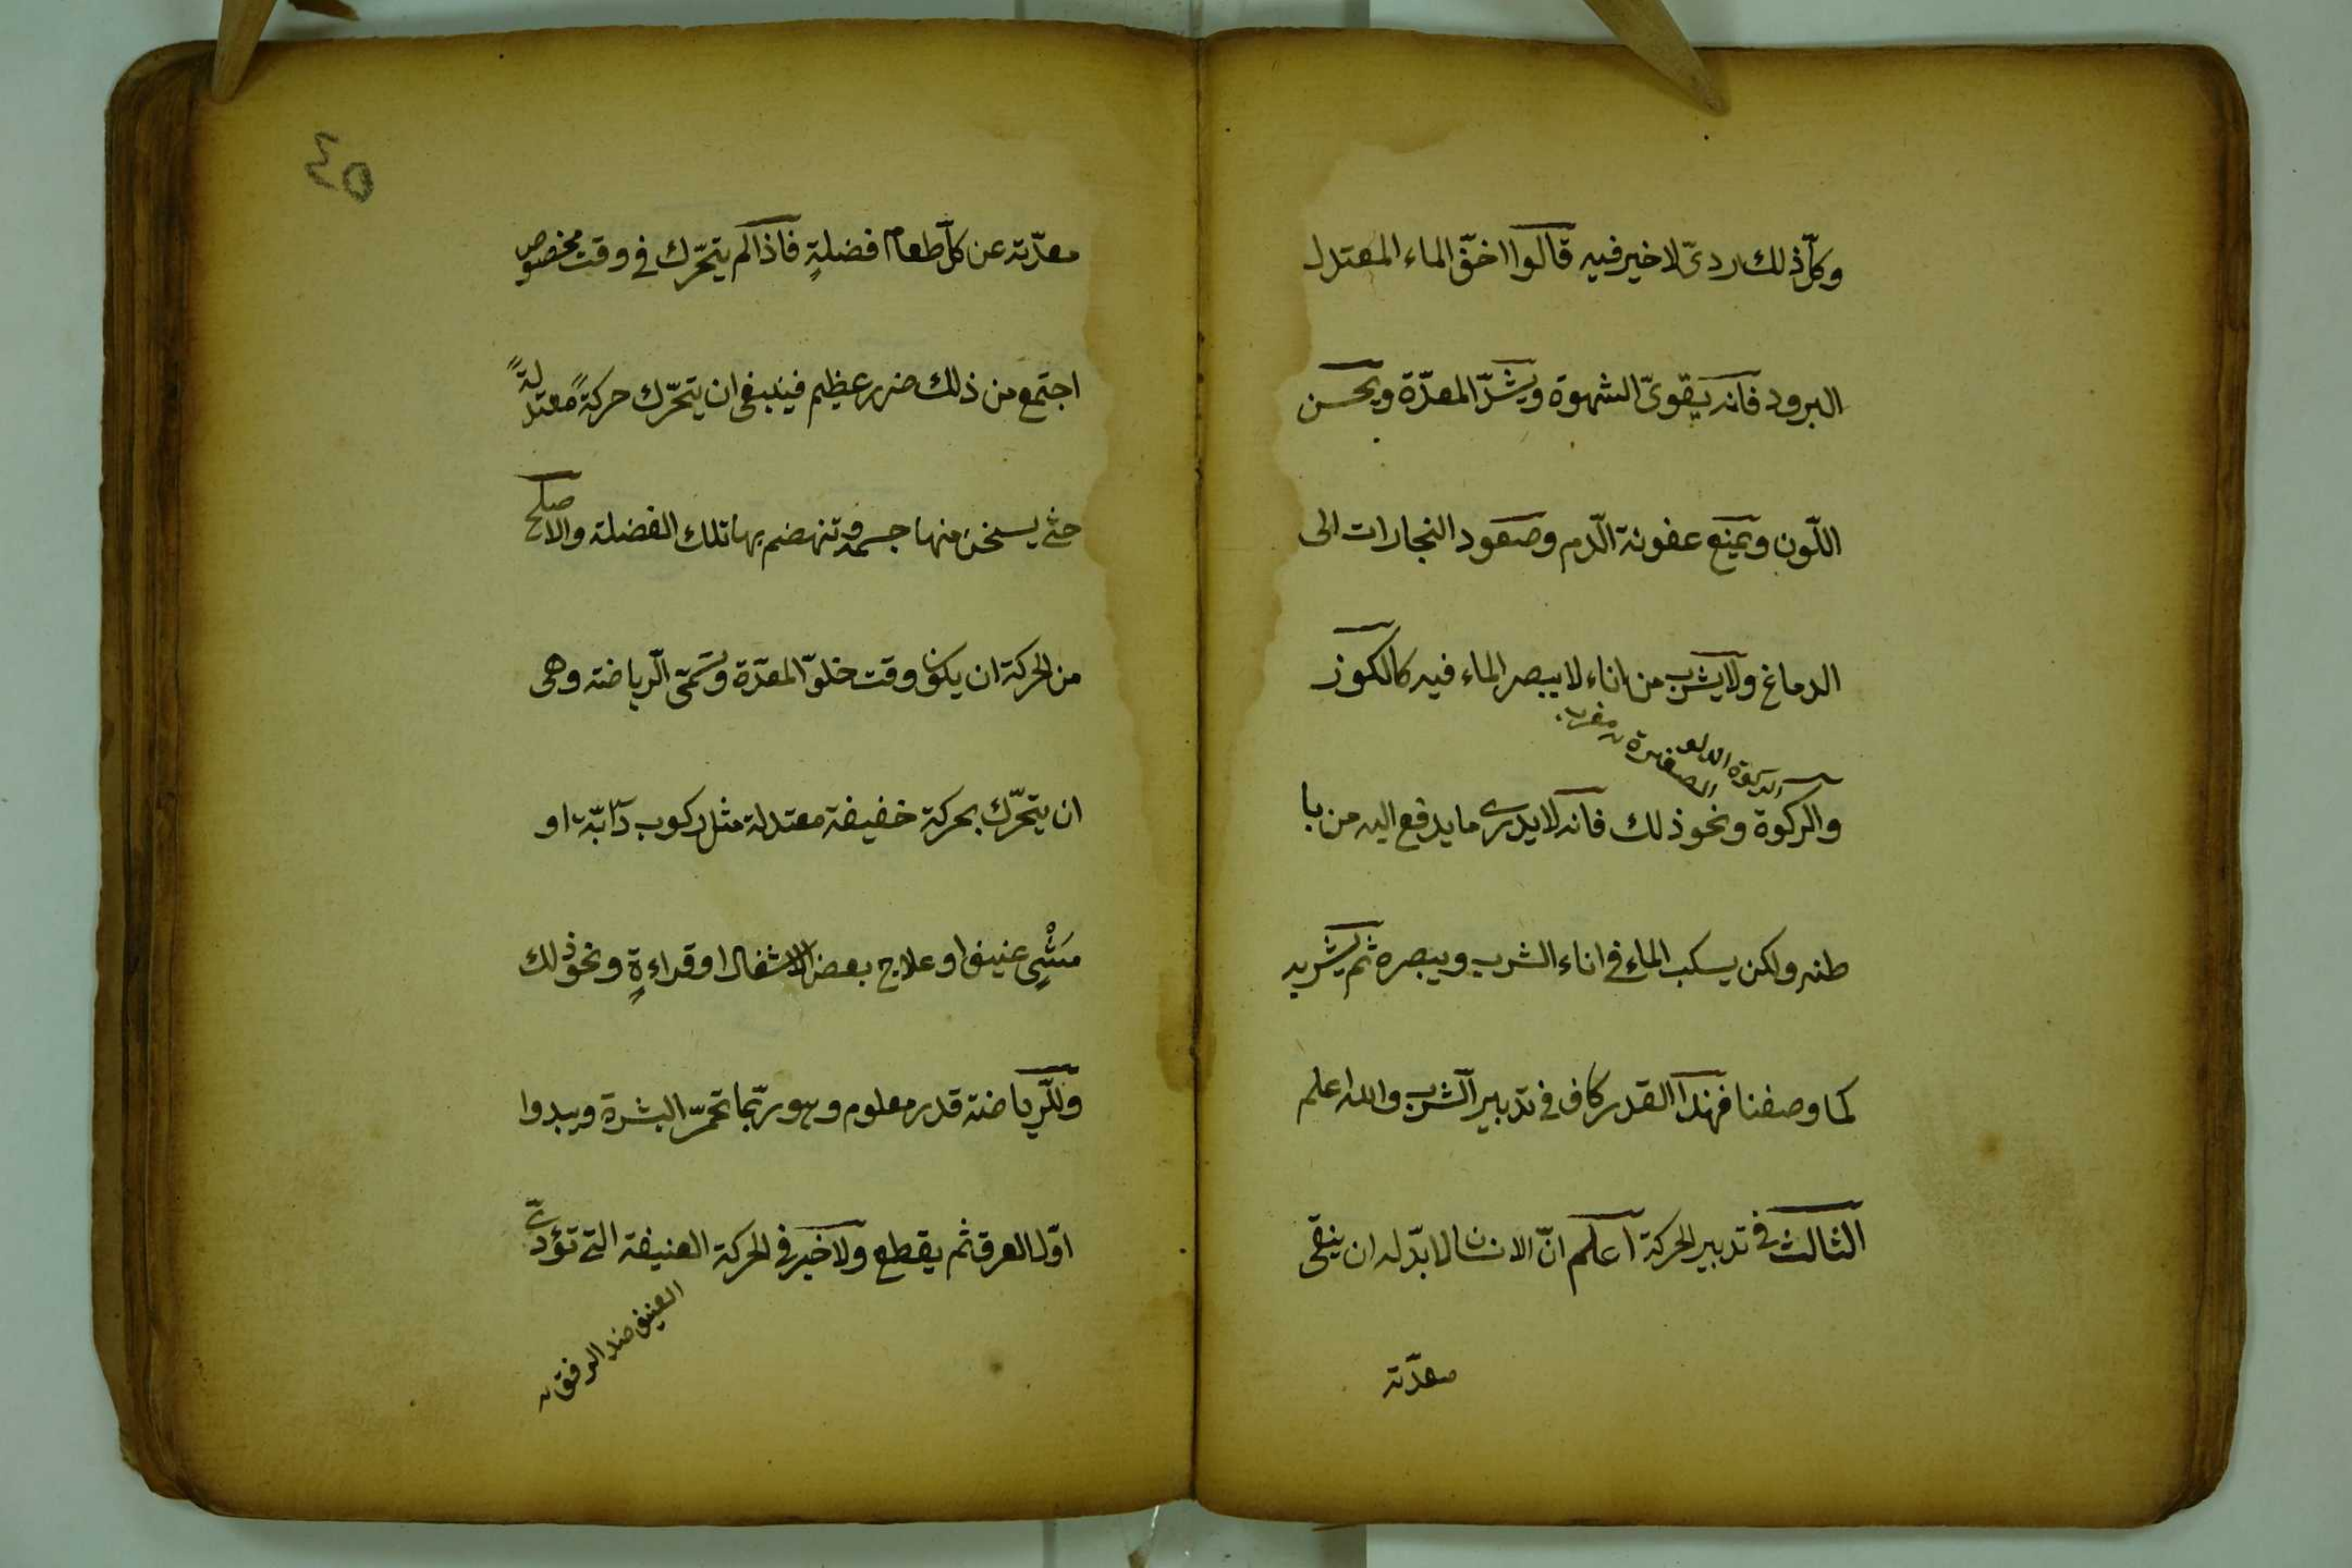 وكلّ ذلك ردىّ لا خير فيه قالوا اخفّ الماء المعتدل
البرود فانه يقوىّ الشهوة ويشدّ المعدّة ويحسن
اللّون ويمنع عفونة الّدم وصعود البخارات الى
الدماغ ولا يشرب من اناء لا يبصر الماء فيه كالكوز
الركوة الدلو
الصغيرة
والركوة ونحو ذلك فانه لا يدرى ما يدفع اليه من با
طنه ولكن يسكب الماء فى اناء الشرب ويبصره ثم يشربه
كما وصفنا فهذا القدر كاف فى تدبير الشرب والله اعلم
الثالث فى تدبير الحركة اعلم انّ الانسان لا بدّ له ان ينقى
معدّته
٤٥
معدّته عن كلّ طعام فضلةٍ فاذا لم يتحّرك فى وقت مخصوص
اجتمع من ذلك ضرر عظيم فينبغى ان يتحّرك حركةً معتدلةً
حتى يسخن منها جسمه وتنهضم بها تلك الفضلة والاصلح
من الحركة ان يكون وقت خلوّ المعدّة وتسمّى الّرياضته وهى
ان يتحّرك بحركة خفيفة معتدلة مثل ركوب دابّة او
مَشْىٍ عنيف او علاج بعض الاشغال او قراءةٍ ونحو ذلك
وللّرياضته قدر معلوم وهو ربّما تحمّر البشرة ويبدوا
اوّل العرق ثم يقطع ولا خير فى الحركة العنيفة التى تؤدّى
العنيف ضد الرفق